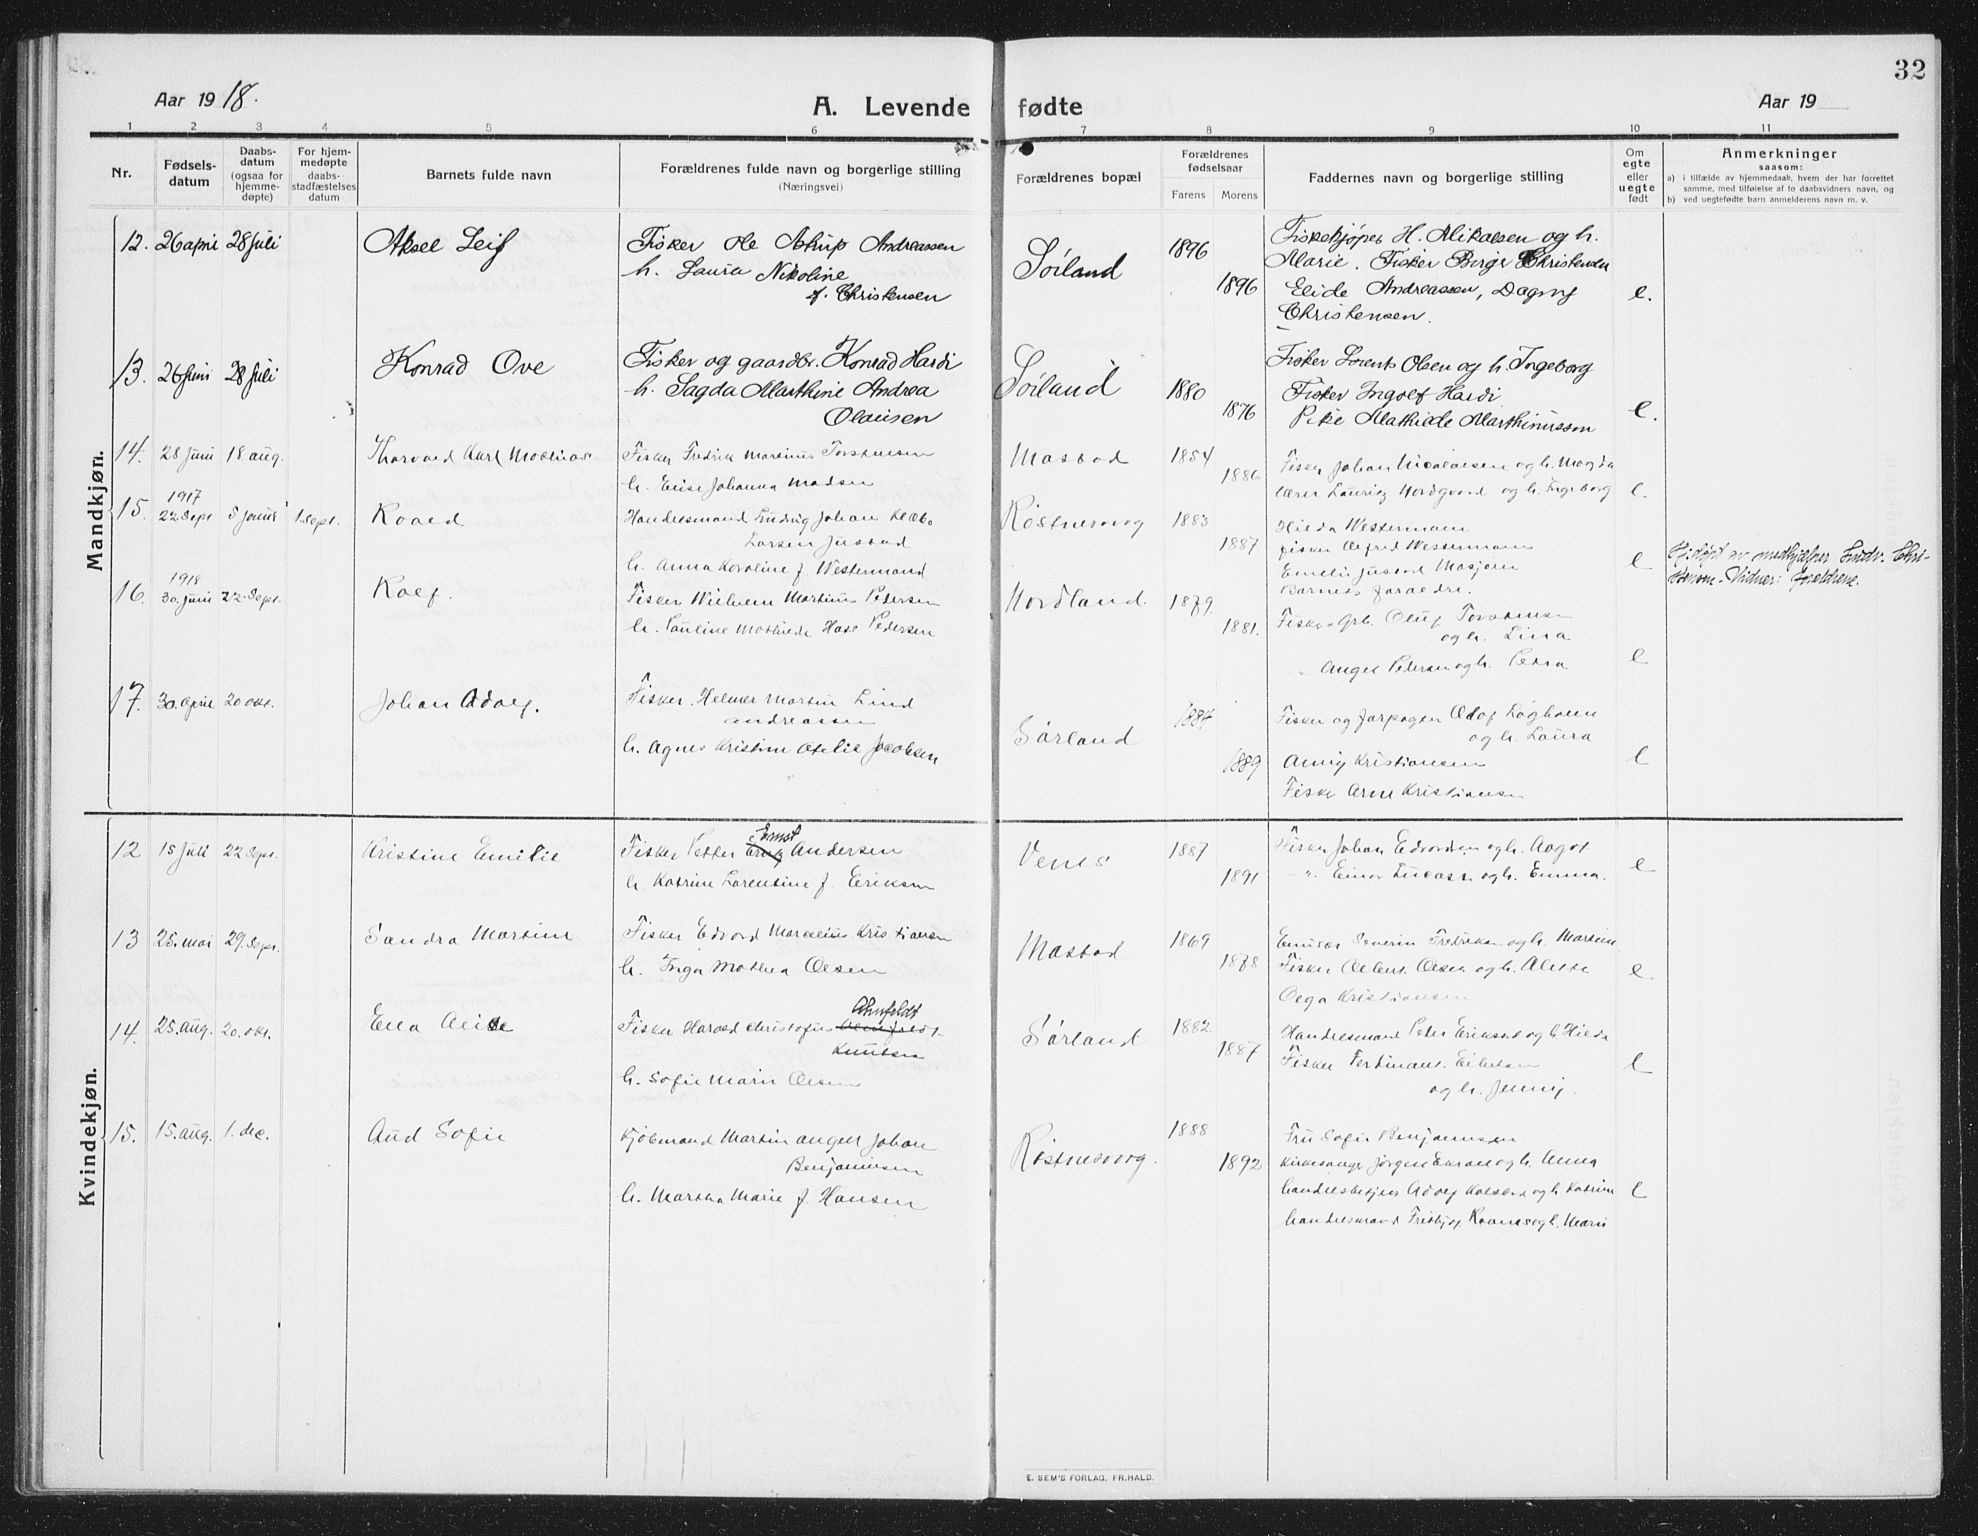 32
Aar 1918.
A. Levende fødte
Aar 19
1 2 3 4 5 6 7 8 9 10 11
Nr.
Fødsels-
datum
Daabs-
datum
(ogsaa for
hjemme-
døpte)
For hjem-
medøpte
daabs-
stadfæstelses
datum
Barnets fulde navn
Forældrenes fulde navn og borgerlige stilling
(Næringsvei)
Forældrenes bopæl
Forældrenes
fødselsaar
Farens Morens
Faddernes navn og borgerlige stilling
Om
egte
eller
uegte
født
Anmerkninger
saasom:
a) i tilfælde av hjemmedaab, hvem der har forrettet
samme, med tilføielse af to daabsvidners navn, og
b) ved uegtefødte barn anmelderens navn m. v.
Mandkjøn.
12. 26 april 28 juli
Aksel Leif
Fisker Ole Astrup Andreassen
h. Laura Nikoline
f. Christensen
Søiland
1896
1896
Fiskekjøper H. Mikalsen og h.
Marie. Fisker Birger Christensen
Elide Andreassen, Dagny
Christensen.
e.
13. 26 juni 28 juli
Konrad Ove
Fisker og gaardbr. Konrad Hardi
h. Sagda Marthine Andrea
Olausen
Søiland
1880
1876
Fisker Lorents Olsen og h. Ingeborg
Fisker Ingolf Hardi
Pike Mathilde Marthinussen
e.
14. 28 juni 18 aug.
Thorvald Karl Mathias
Fisker Fredrik Martinus Torstensen
h. Elise Johanna Madsen
Mastad
1884
1886
Fisker Johan Nicolaisen og h. Magda
lærer Lauritz Nordgaard og h. Ingeborg
e
15. 1917
22 sept 5 januar 1 sept.
Roald
Handelsmand Ludvig Johan
Larsen Justad
h. Anna Karoline f. Westermand
Røstnesvaag
1883
1887
Hilda Westermann
fisker Alfred Westermann
Emelie Justad Mosjøen
Barnets foraldre.
e
Hjdøpt av medhjælper Chri-
Vidner: Foreldrene.
16. 1918
30. juni 22. sept.
Rolf.
Fisker Wilhelm Martinus Petersen
h. Pauline Mathilde Hass Pedersen
Nordland.
1879
1881.
Fisker gbr. Oluf Torstensen
og h. Lina
" Angel Petersen og h. Petra
e
17. 30. april 20 okt.
Johan Adolf.
Fisker. Helmer Martin Lind
Andreassen
h. Agnes Kristine Otelie Jacobsen
Sørland
1884
1889
Fisker og
og h. Laura
Anny Kristiansen
Fisker Arne Kristiansen
e
Kvindekjøn.
12 15 juli 22 sept.
Kristine Emilie
Ernst
Fisker Petter Andersen
h. Katrine Lorentine f. Eriksen
1887
1891
Fisker Johan Edvardsen og h. Aagot
" Einar Lucass. og h. Emma.
e
13 25. mai 29. sept.
Sandra Martine
Fisker Edvard Marselius Kristiansen
h. Inga Mathea Olsen
Mastad
1869
1878
Severin Fredriksen og h. Martine
Fisker Albert Olsen og h. Alette
Olga Kristiansen
e
14. 25. aug. 20. okt.
Ella Alise
Ahnfeldt
Fisker Harald Christofer
Knutsen
h. Sofie Marie Olsen
Sørland
1882
1887
Handelsmand Peter Eriksen og h. Hilda
Fisker Ferdinant Ellertsen
og h. Jenny.
e
15. 15. aug. 1. dec.
Aud Sofie
Kjøbmand Martin Angell Johan
Benjaminsen
h. Martha Marie f. Hansen
Røstnesvaag.
1888
1892
Fru Sofie Benjaminsen
Kirkesanger Jørgen Ekran og h. Anna
handelsbetjent Adolf og h. Katrine
handelsmand Fridtjof og h. Marie
e
E. SEM'S FORLAG, FR.HALD.